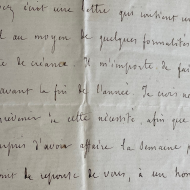 avez écrit une lettre qui contient un
d au moyen de quelques formalités
e de créance. Il m'importe de fai
avant la fin de l'année. Je crois
prévenir à cette nécessité, afin que
d'avoir affaire la semaine p
de réponse de vous, à un hom